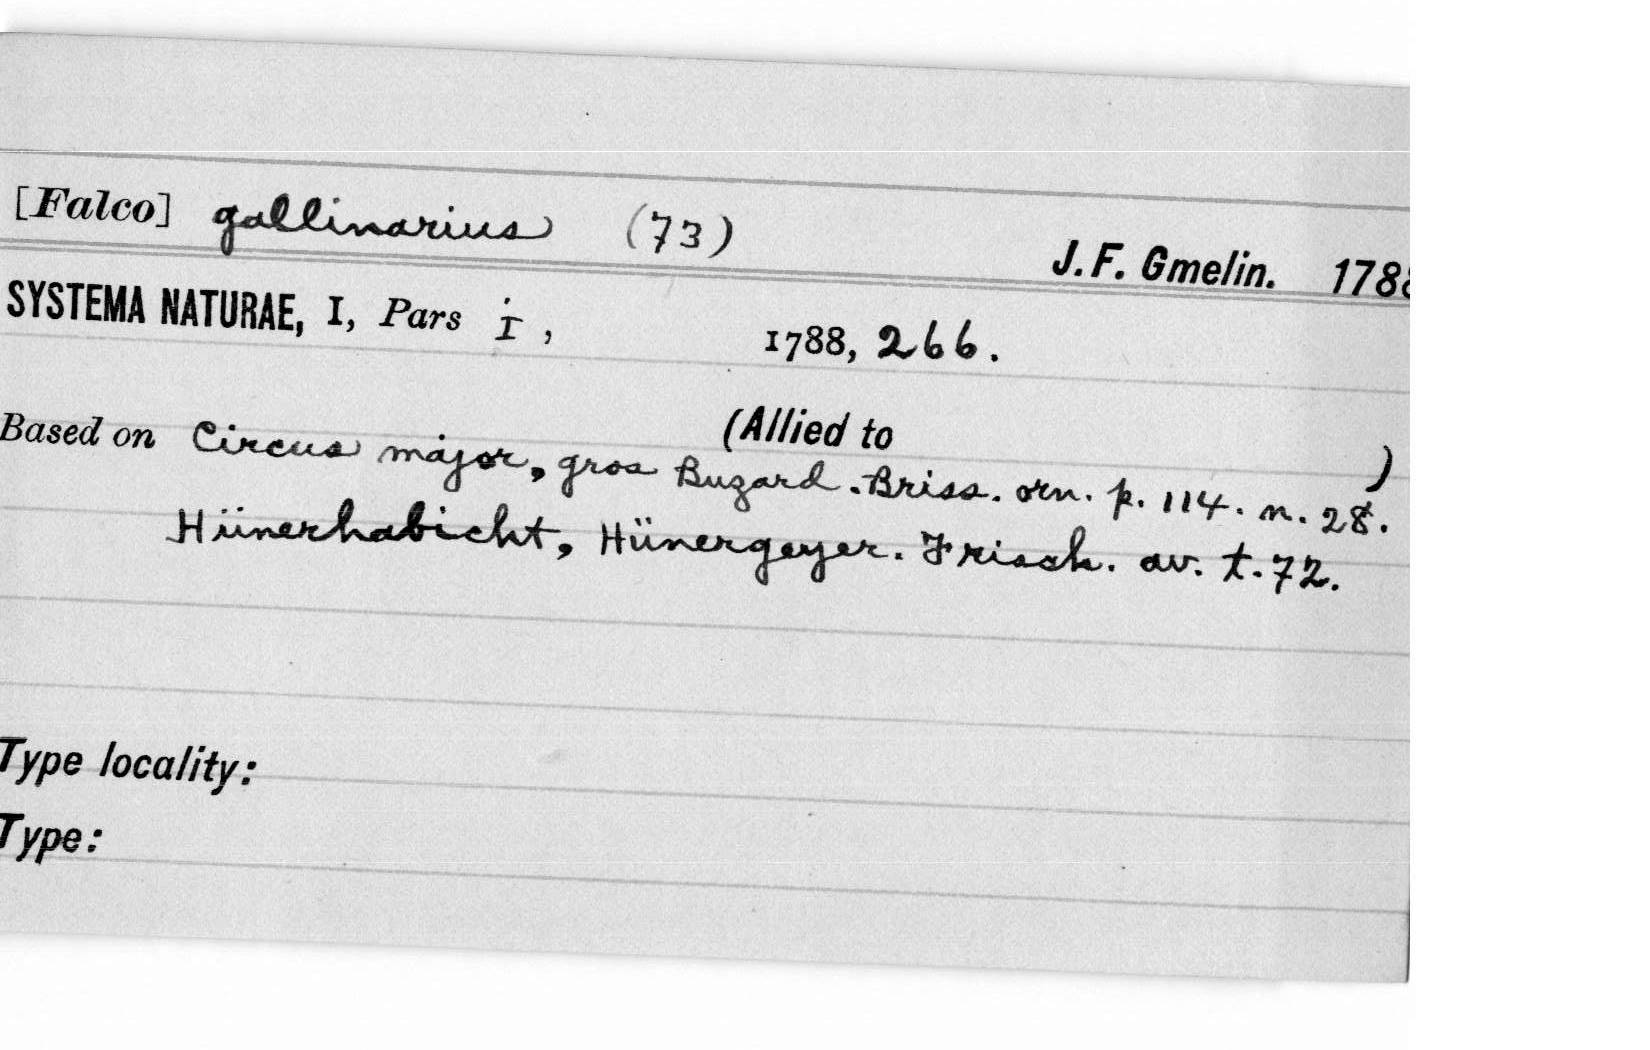 [Falco] gallinarius (73)
J. F. Gmelin. 1788
SYSTEMA NATURAE, I, Pars I, 1788, 266.
(Allied to )
Based on Circus major, gros Buzard. Briss. orn. p. 114. n. 28.
Hünerhabicht, Hünergeyer. Frisch. av. t. 72.
Type locality:
Type: